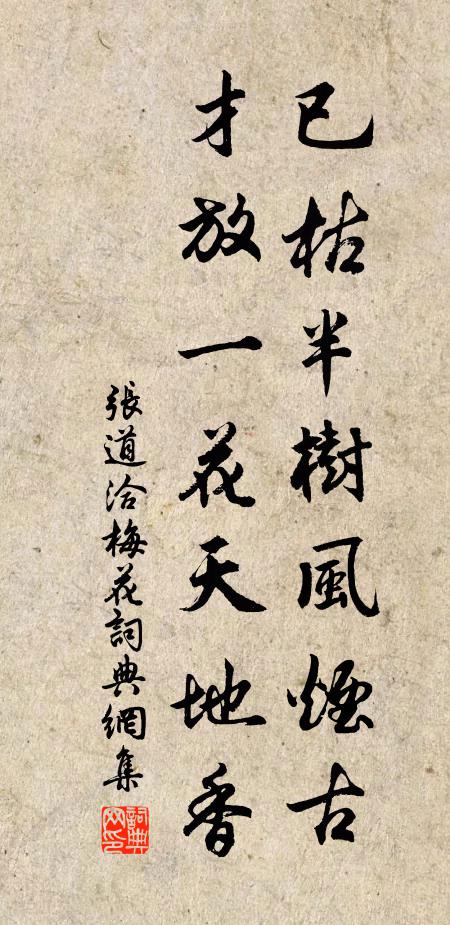 已枯半樹風煙古
才放一花天地香
張道洽梅花詞典網集
詞典网印